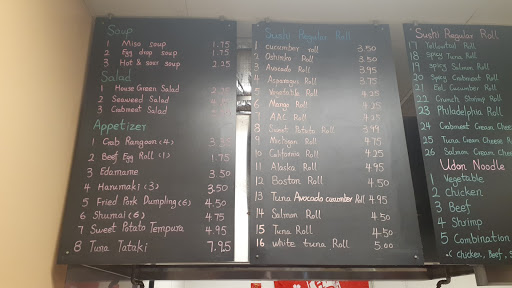 Soup
1 Miso soup 1.75
2 Egg drop soup 1.75
3 Hot & sour soup 2.25
Salad
1 House Green Salad
2 Seaweed Salad
3 Crabmeat Salad
Appetizer
1 Crab Rangoon (4)
2 Beef Egg Roll (1) 1.75
3 Edamame 3.50
4 Harumaki (3) 3.50
5 Fried Pork Dumpling (6) 4.50
6 Shumai (6) 4.75
7 Sweet Potato Tempura 4.95
8 Tuna Tataki 7.95
Sushi Regular Roll
1 cucumber roll 3.50
2 Oshinko Roll 3.50
3 Avocado Roll 3.95
4 Asparagus Roll 3.75
5 Vegetable Roll 4.25
6 Mango Roll 4.25
7 AAC Roll 4.25
8 Sweet Potato Roll 3.99
9 Michigan Roll 4.75
10 California Roll 4.25
11 Alaska Roll 4.95
12 Boston Roll 4.50
13 Tuna Avocado cucumber Roll 4.95
14 Salmon Roll 4.50
15 Tuna Roll 4.50
16 white tuna Roll 5.00
Sushi Regular Roll
17 Yellowtail Roll
18 spicy Tuna Roll
19 spicy Salmon Roll
20 Spicy Crabmeat Roll
21 Eel Cucumber Roll
22 Crunch Shrimp Roll
23 Philadelphia Roll
24 Crabmeat Cream Chees
25 Tuna Cream Cheese R
26 Salmon Cream Chee
Udon Noodle
1 Vegetable
2 Chicken
3 Beef
4 Shrimp
5 Combination
Chicken, Beef, S